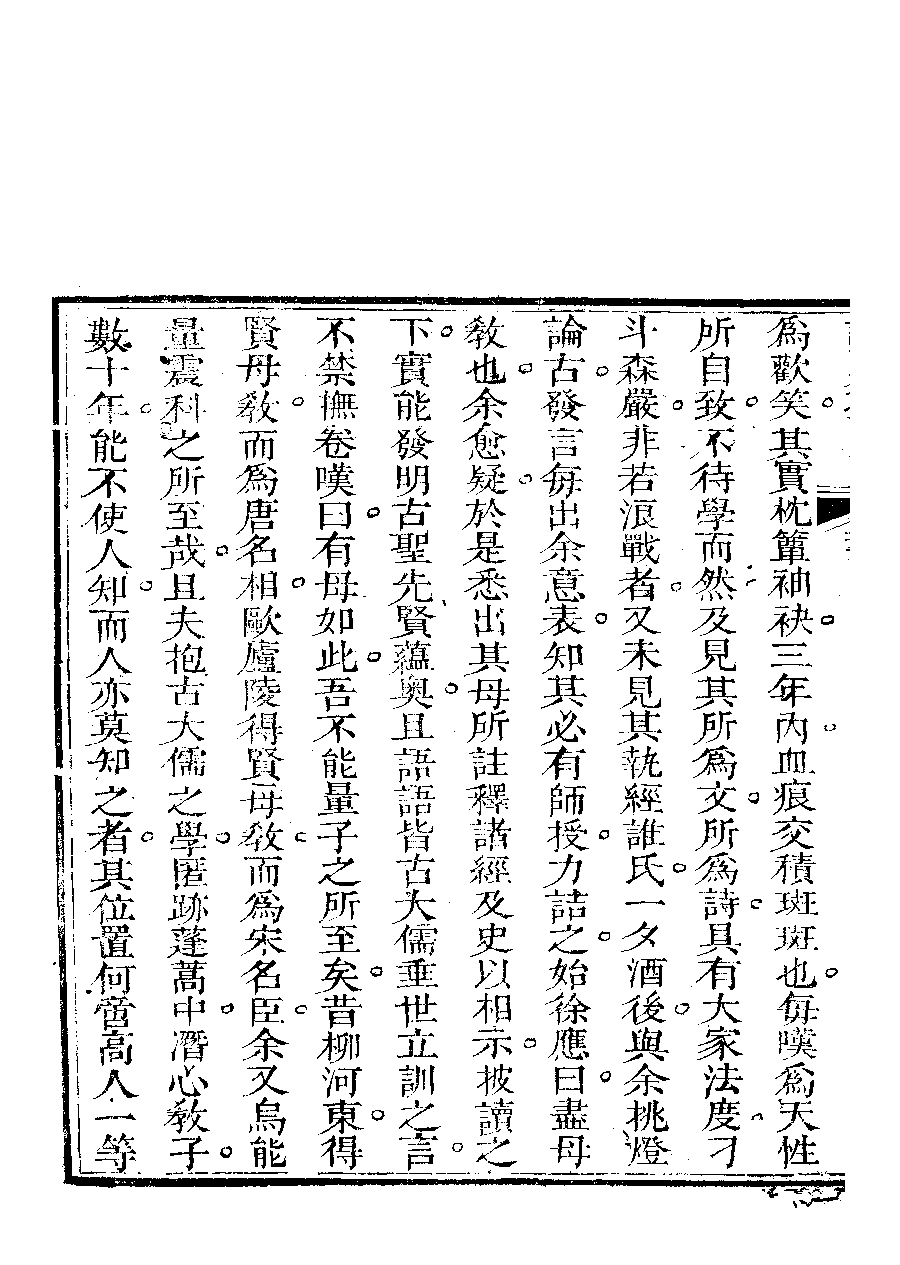 爲歡笑。其實枕簟袖袂。三年內。血痕交積斑斑也。每嘆爲天性
所自致。不待學而然。及見其所爲文。所爲詩。具有大家法度。刁
斗森嚴。非若浪戰者。又未見其執經誰氏。一夕酒後。與余挑燈
論古。發言每出余意表。知其必有師授。力詰之。始徐應曰。盡母
教也。余愈疑。於是悉出其母所註釋諸經及史以相示。披讀之
下。實能發明古聖先賢蘊奧。且語語皆古大儒垂世立訓之言。
不禁撫卷嘆曰。有母如此。吾不能量子之所至矣。昔柳河東。得
賢母教。而爲唐名相。歐廬陵得賢母教。而爲宋名臣。余又烏能
量震科之所至哉。且夫抱古大儒之學。匿跡蓬蒿中。潛心教子。
數十年。能不使人知。而人亦莫知之者。其位置何啻高人一等